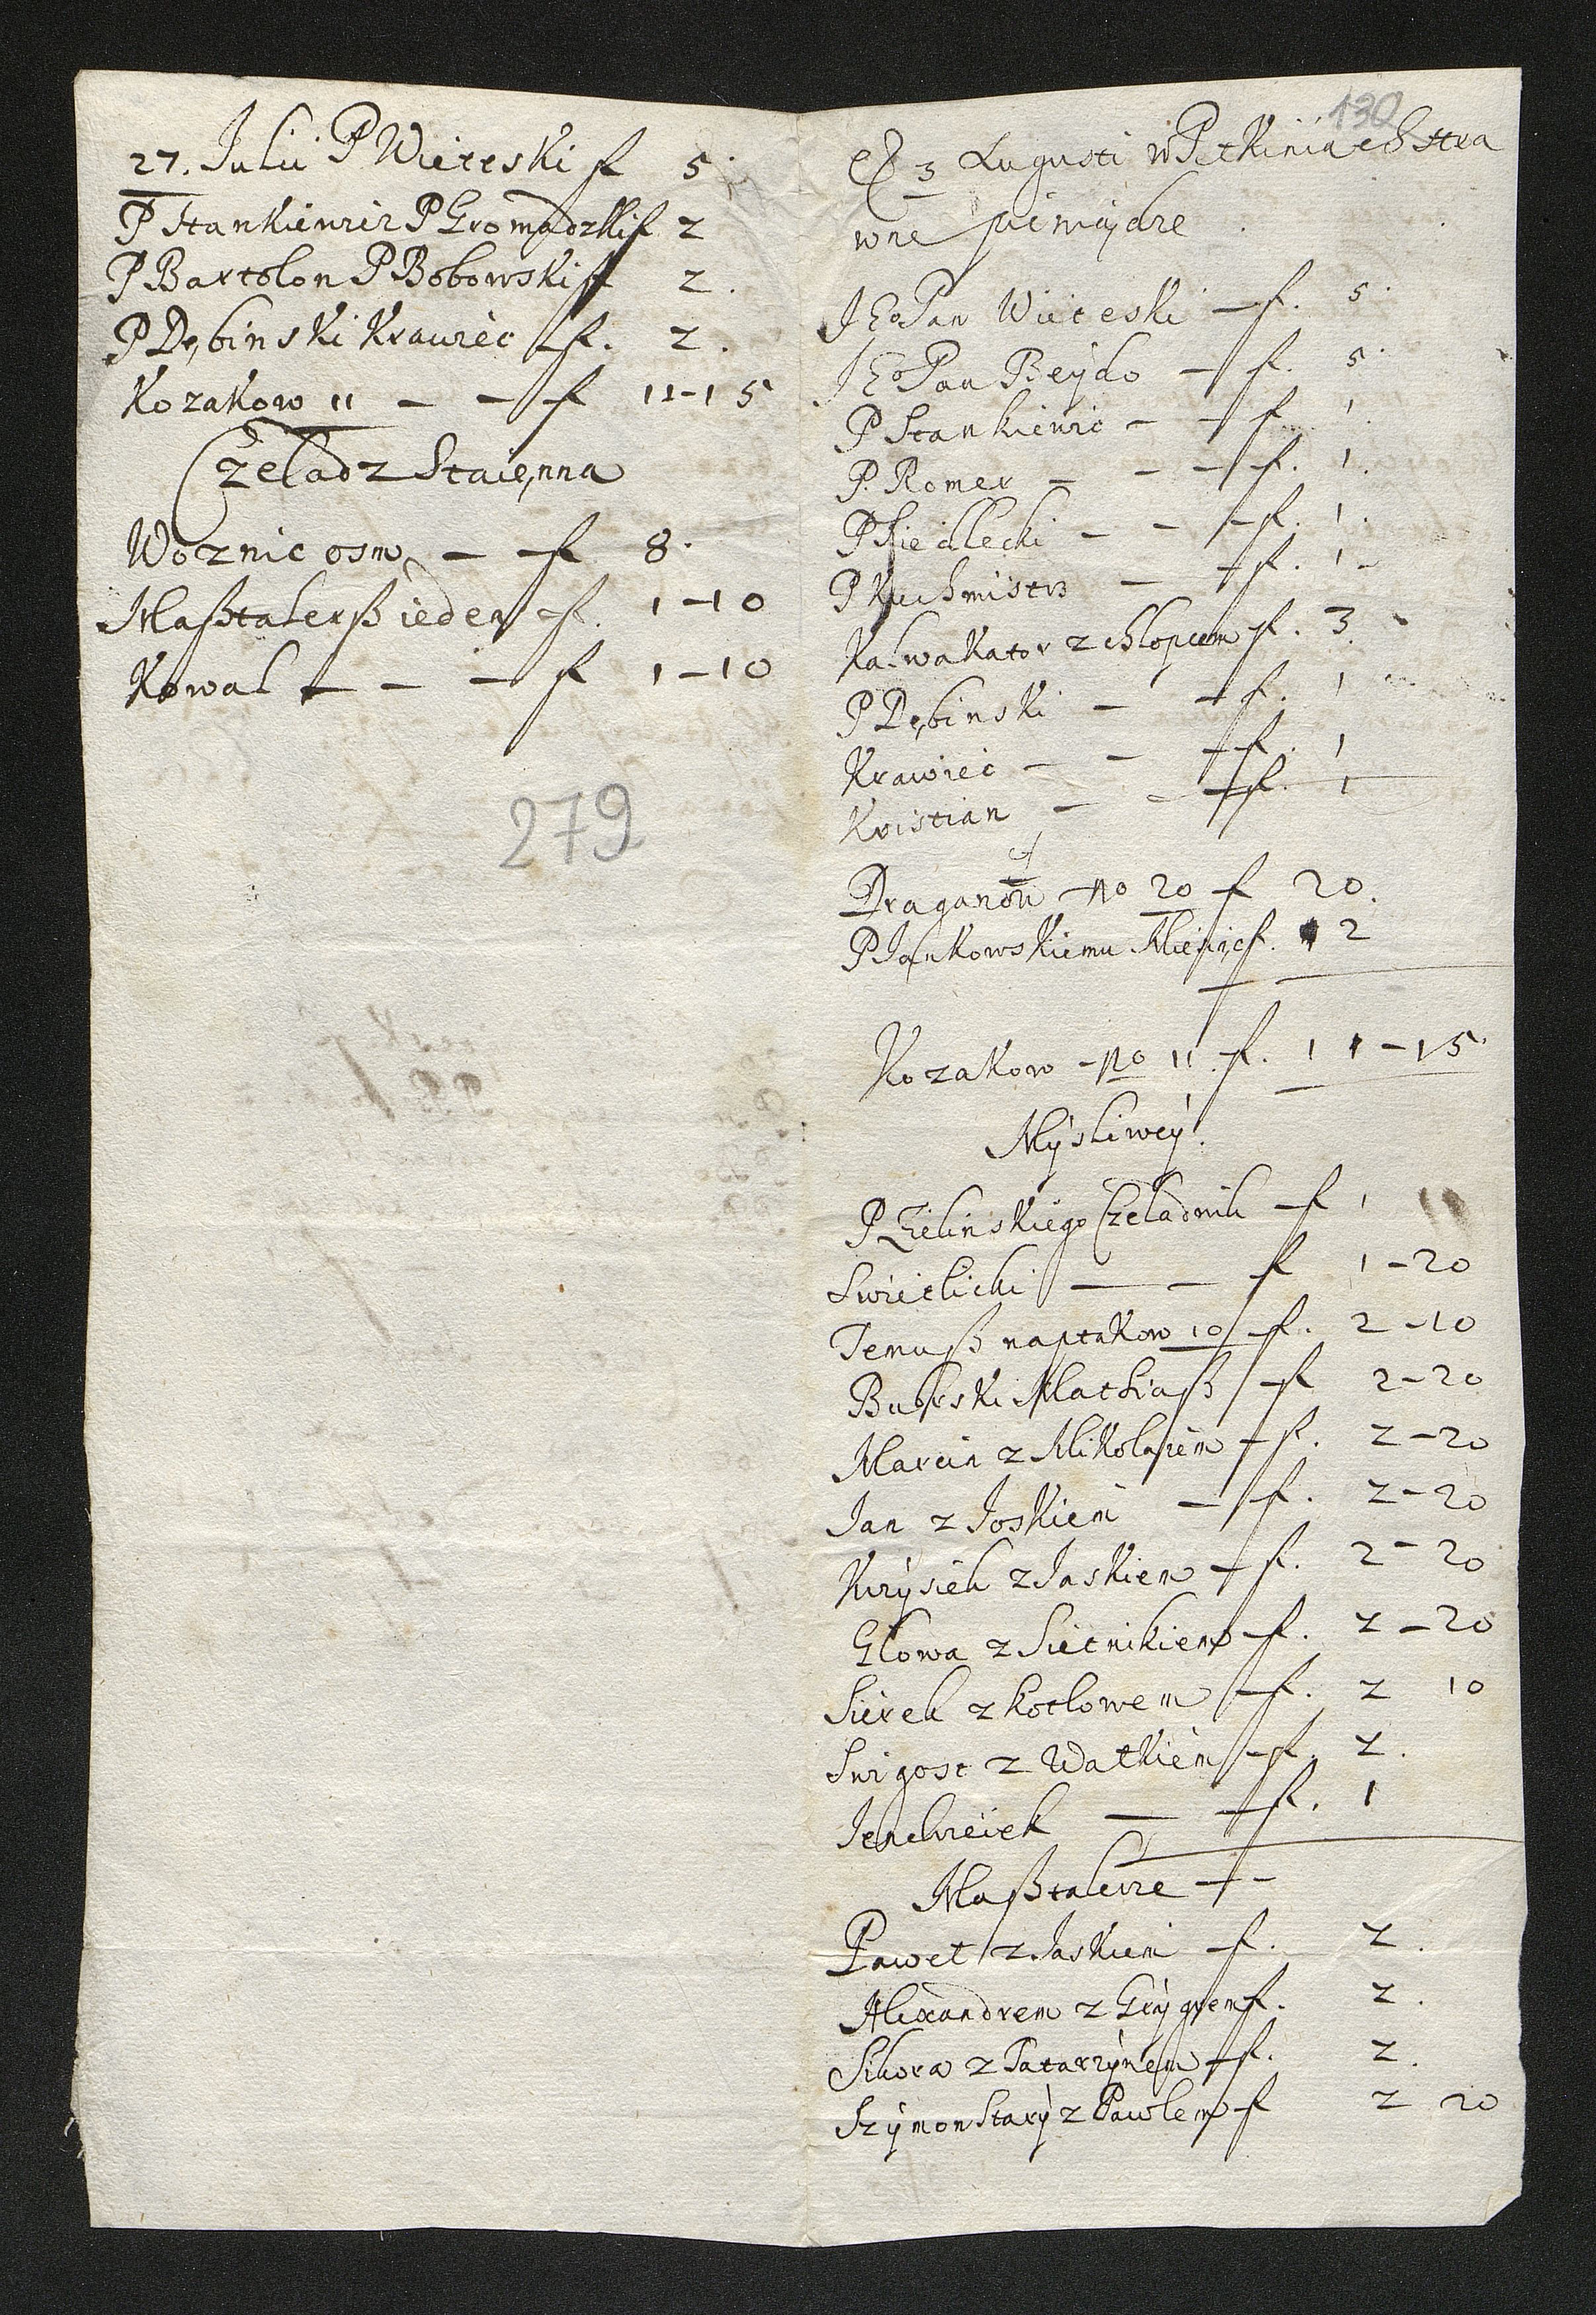 27. Julii P Wieteski f 5.
P Stankiewicz P Gromadzki f 2
P Bartolon P Bobowski f 2.
P Dębinski Krawiec f. 2.
Kozakow 11 — — f 11-15
Czeladz Staienna
Woznic osm — f 8.
Maßtalerß ieden f. 1-10
Kowal — — — f 1-10
279
130
3 Augusti w Pitkiniach Stra
wne pieniądze
JEo Pan Wieteski — f. 5.
JEo Pan Beÿdo — f. 5.
P Stankiewic — — f. 1.
P. Romer — — — f. 1.
P Siedlecki — — f. 1.
P Kuchmistrz — — f. 1 -
Kalwakator z chlopcem f. 3.
P Dębinski — — f. 1
Krawiec — — f. 1
Kristian — — f. 1
Draganow no 20 f 20.
P Jankowskiemu f. 2
Kozakow - no 11. f. 11-15.
Mÿsliwcÿ.
P Zielinskiego Czeladnik — f 1
Swietlicki — — f 1-20
Jenuß na ptakow 10 — f. 2-10
Mathiaß — f 2-20
Marcin z Mikolaiem — f. 2-20
Jan z Joskiem — f. 2-20
Krÿsiek z Jaskiem — f. 2-20
Glowa z Sietnikiem f. 2-20
Sierek z Kotlowem — f. 2 10
Swigost z Watkiem — f. 2.
Jendrzeiek — f. 1
Maßtalerze — -
Pawel z Jaskiem f. 2.
Alexandrem z Grÿgrem f. 2.
Sikora z Tatarzÿnem f. 2.
Szÿmon Starÿ z Pawlem f 2 20